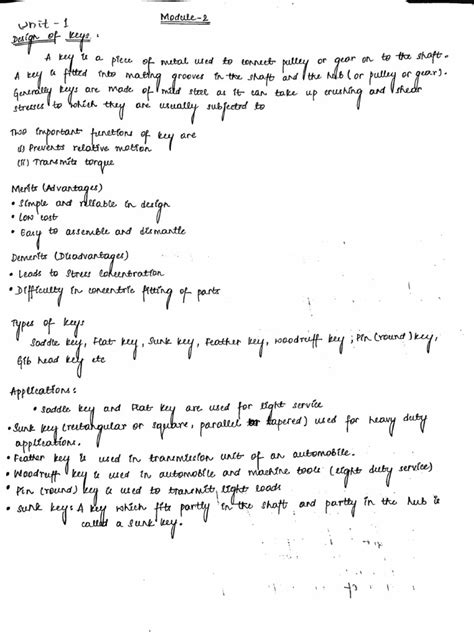 Module-2
Unit - 1
Design of Keys :
A key is a piece of metal used to connect pulley or gear on to the shaft.
A key is fitted into mating grooves in the shaft and the hub (or pulley or gear).
Generally keys are made of mild steel as it can take up crushing and shear
stresses to which they are usually subjected to
Two important functions of key are
(i) Prevents relative motion
(ii) Transmits torque
Merits (Advantages)
• Simple and reliable in design
• Low cost
• Easy to assemble and dismantle
Demerits (Disadvantages)
• Leads to stress concentration
• Difficulty in concentric fitting of parts
Types of Keys
Saddle key, Flat key, Sunk key, Feather key, Woodruff key ; Pin (round) key,
Gib head key etc
Applications :
• Saddle key and Flat key are used for light service
• Sunk key (rectangular or square, parallel or tapered) used for heavy duty
applications.
• Feather key is used in transmission unit of an automobile.
• Woodruff key is used in automobile and machine tools (light duty service)
• Pin (round) key is used to transmit light loads
• Sunk key: A key which fits partly in the shaft and partly in the hub is
called a sunk key.